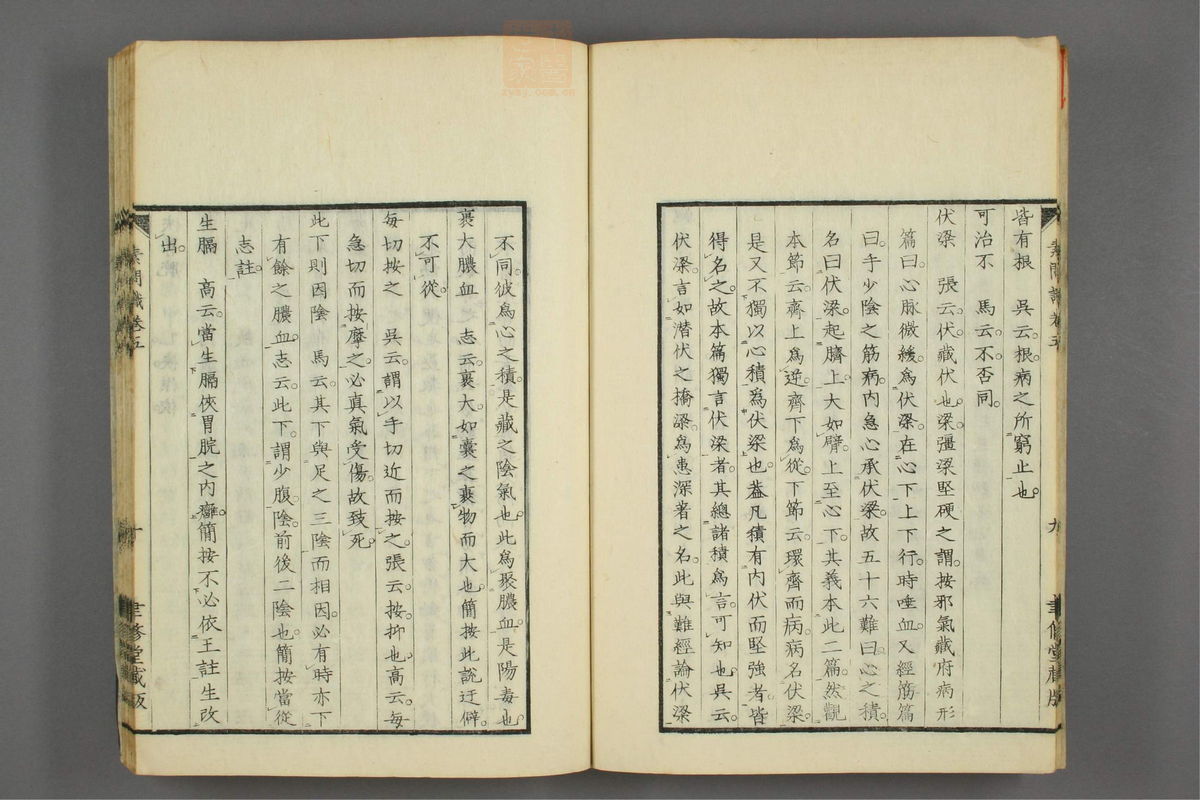 皆有根　吳云。根。病之所窮止也。
可治不　馬云。不。否同。
伏梁　張云。伏藏伏也。梁。彊梁堅硬之謂。按邪氣藏府病形
篇曰。心脉微緩。爲伏梁。在心下。上下行。時唾血。又經筋篇
曰。手少陰之筋病。內急心承伏梁。故五十六難曰。心之積。
名曰伏梁。起臍上。大如臂。上至心下。其義本此二篇。然觀
本節云。齊上爲逆。齊下爲從。下節云。環齊而病。病名伏梁。
是又不獨以心積爲伏梁也。蓋凡積有內伏而堅強者。皆
得名之。故本篇獨言伏梁者。其總諸積爲言。可知也。吳云。
伏梁。言如潛伏之橋梁。爲患深著之名。此與難經論伏梁
不同。彼爲心之積。是藏之陰氣也。此爲聚膿血。是陽毒也。
裹大膿血　志云。裹大如囊之裹物而大也。簡按此說迂僻。
不可從。
每切按之　吳云。謂以手切近而按之。張云。按。抑也。高云。每
急切而按摩之。必真氣受傷。故致死。
此下則因陰　馬云。其下與足之三陰而相因。必有時亦下
有餘之膿血。志云。此下。謂少腹。陰。前後二陰也。簡按當從
志註。
生膈　高云。當生膈俠胃脘之內癰。簡按不必依王註生改
出。
素問識卷五　九　聿修堂藏版
素問識卷五　十　聿修堂藏版
zysj.com.cn